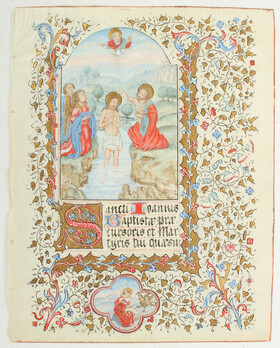 Sancti Ioannis
Baptistæ præ
cursoris et Mar
tyris tui quæsu